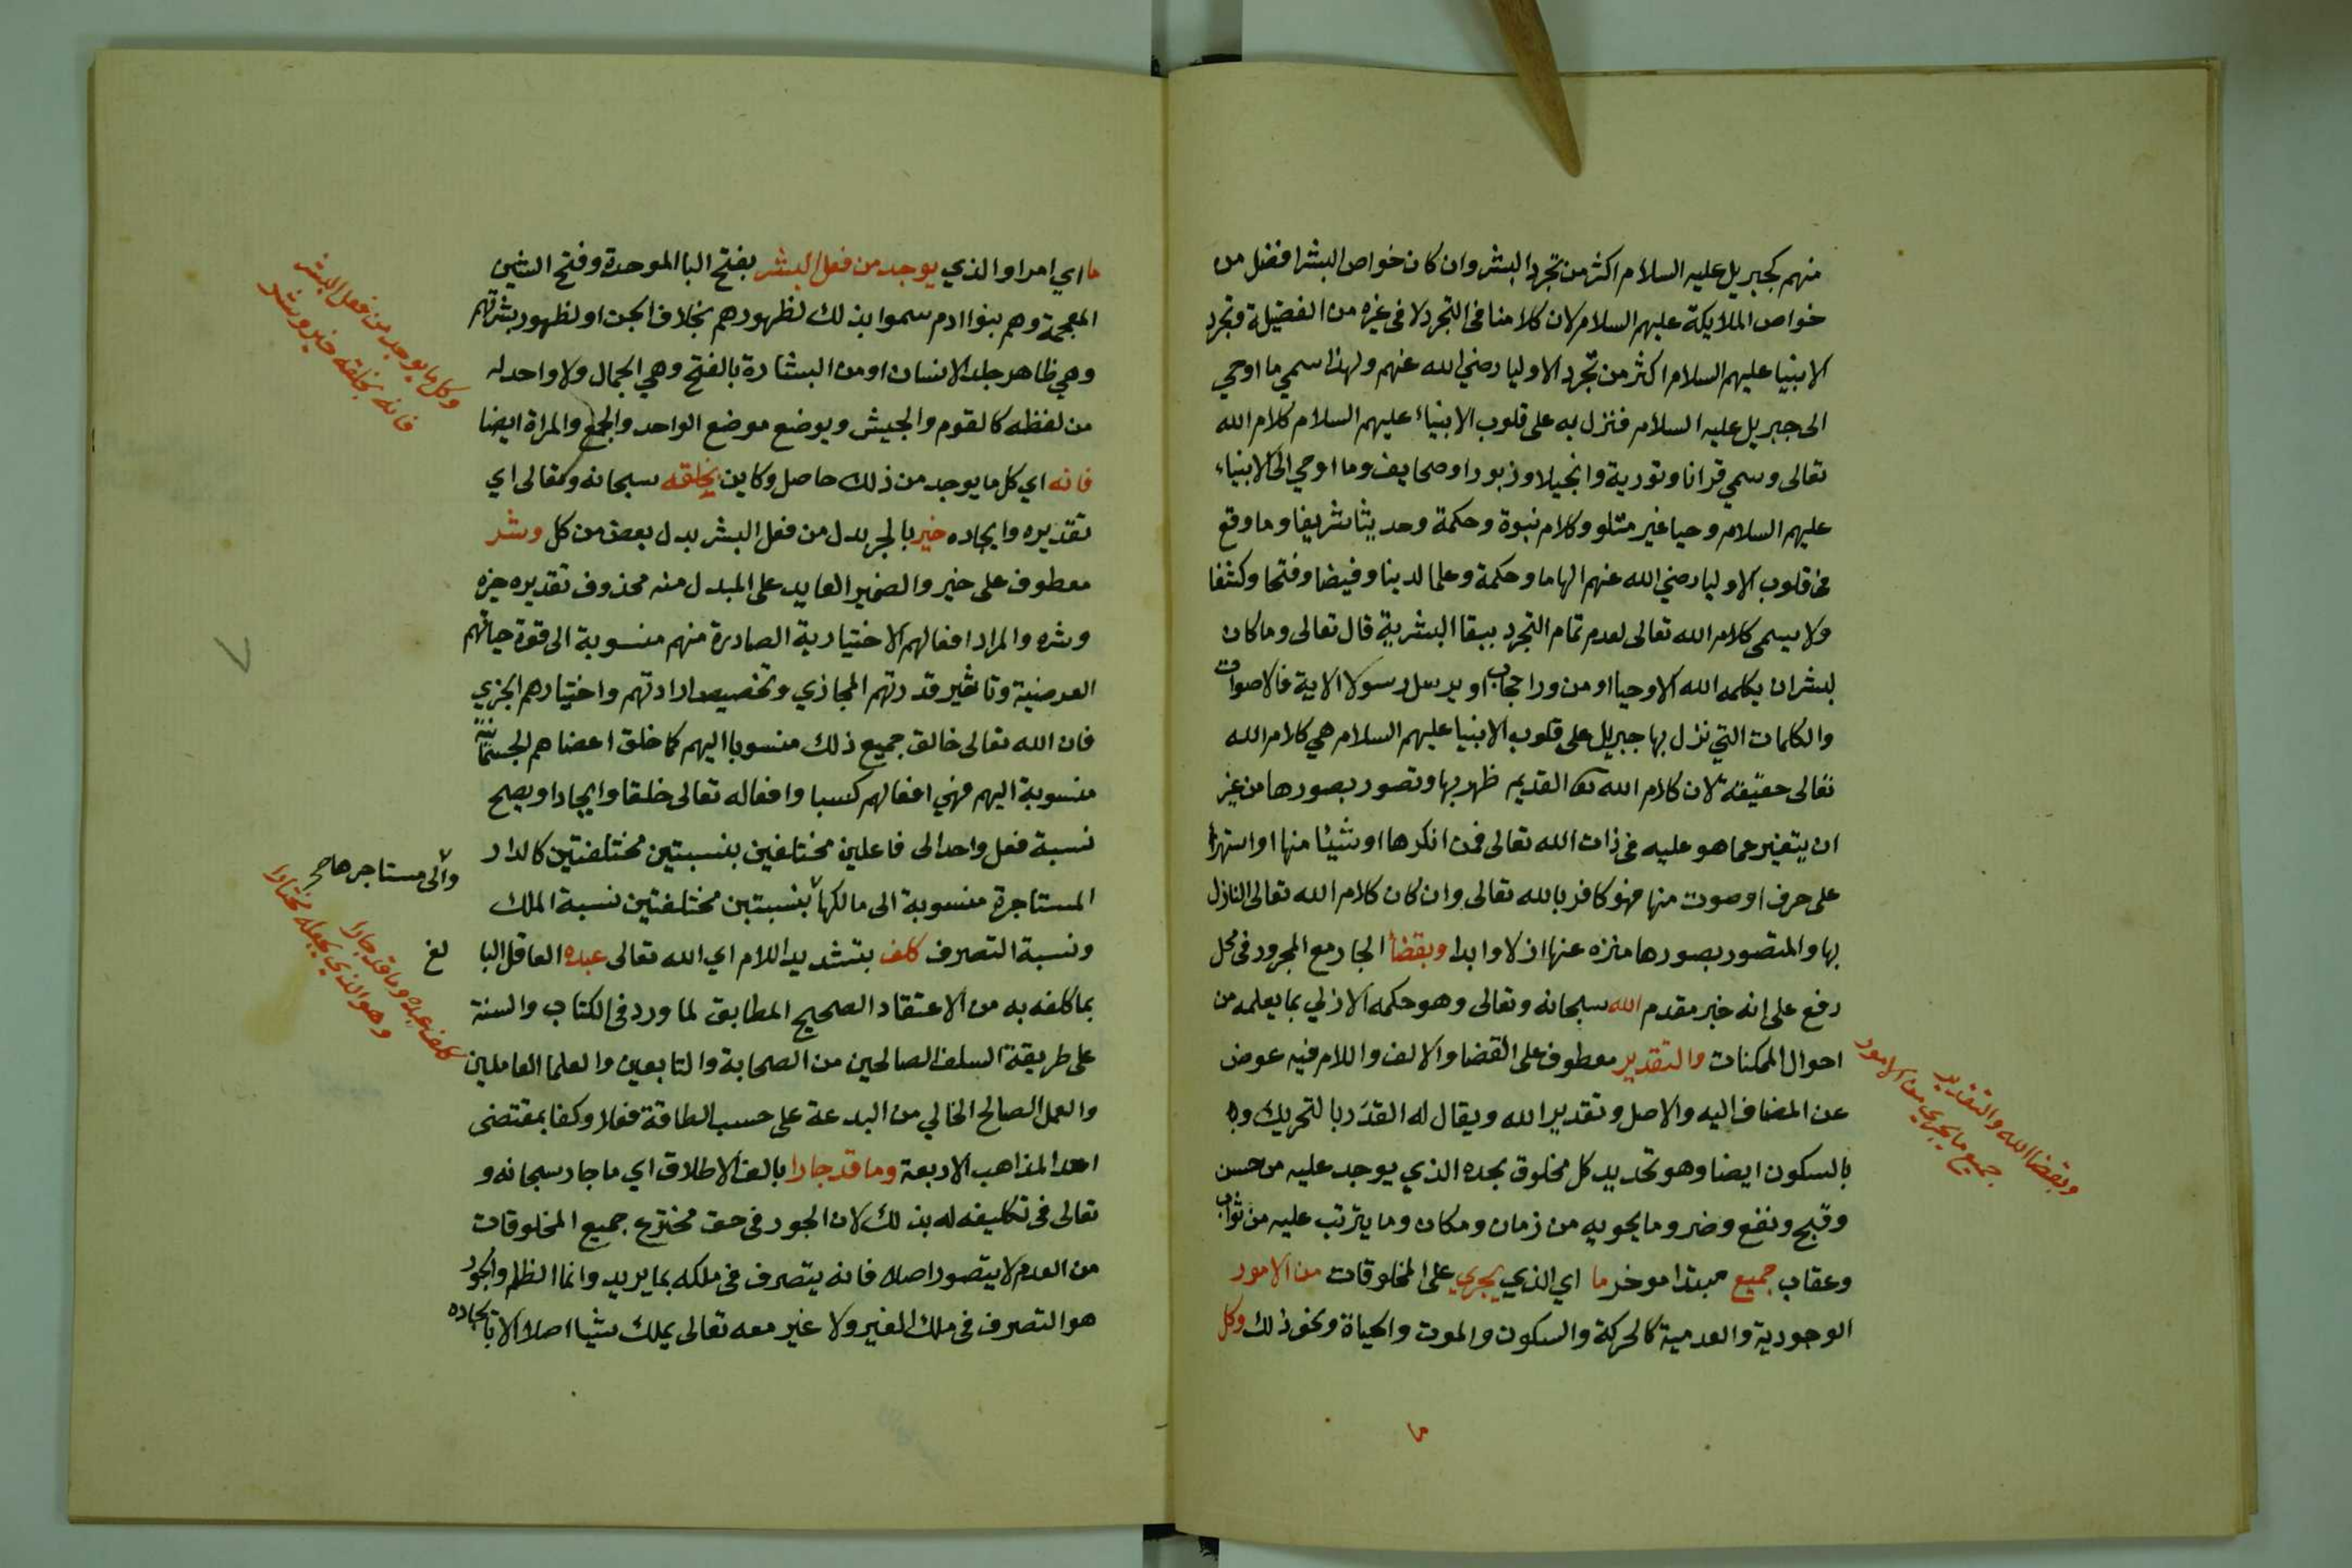 منهم كجبريل عليه السلام اكثر من تجرد البشر وان كان خواص البشر افضل من
خواص الملايكة عليهم السلام لان كلامنا في التجرد لا في غيره من الفضيلة وتجرد
الانبيا عليهم السلام اكثر من تجرد الاوليا رضي الله عنهم ولهذا سمي ما اوحي
الى جبريل عليه السلام فنزل به على قلوب الانبياء عليهم السلام كلام الله
تعالى وسمي قرانا وتورية وانجيلا وزبورا وصحايف وما اوحي الى الانبياء
عليهم السلام وحيا غير متلو وكلام نبوة وحكمة وحديثا شريفا وما وقع
في قلوب الاوليا رضي الله عنهم الهاما وحكمة وعلما لدنيا وفيضا وفتحا وكشفا
ولا يسمى كلام الله تعالى لعدم تمام التجرد ببقا البشرية قال تعالى وما كان
لبشر ان يكلمه الله الا وحيا او من ورا حجاب او يرسل رسولا الاية فالاصوات
والكلمات التي نزل بها جبريل على قلوب الانبيا عليهم السلام هي كلام الله
تعالى حقيقة لان كلام الله تعا القديم ظهر بها وتصور بصورها من غير
ان يتغير عما هو عليه في ذات الله تعالى فمن انكرها او شيئا منها او استهزا
على حرف او صوت منها فهو كافر بالله تعالى وان كان كلام الله تعالى النازل
بها والمتصور بصورها منزه عنها ازلا وابدا وبقضا الجار مع المجرور في محل
رفع على انه خبر مقدم الله سبحانه وتعالى وهو حكمه الازلي بما يعلمه من
احوال الممكنات والتقدير معطوف على القضا والالف واللام فيه عوض
عن المضاف اليه والاصل وتقدير الله ويقال له القدَر بالتحريك وبه
بالسكون ايضا وهو تحديد كل مخلوق بحده الذي يوجد عليه من حسن
وقبح ونفع وضر وما يحويه من زمان ومكان وما يترتب عليه من ثواب
وعقاب جميع مبتدا موخر ما اي الذي يجري على المخلوقات من الامور
الوجودية والعدمية كالحركة والسكون والموت والحياة ونحو ذلك وكل
وبقضا الله والتقدير
جميع ما يجري من الامور
ما
ما اي امر او الذي يوجد من فعل البشر بفتح البا الموحدة وفتح الشين
المعجمة وهم بنوا ادم سموا بذلك لظهورهم بخلاف الجن او لظهور بشرتهم
وهي ظاهر جلد الانسان او من البشارة بالفتح وهي الجمال ولا واحد له
من لفظه كالقوم والجيش ويوضع موضع الواحد والجمع والمراة ايضا
فانه اي كل ما يوجد من ذلك حاصل وكاين بخلقه سبحانه وتعالى اي
تقديره وايجاده خير بالجر بدل من فعل البشر بدل بعض من كل وشر
معطوف على خير والضمير العايد على المبدل منه محذوف تقديره خيره
وشره والمراد افعالهم الاختيارية الصادرة منهم منسوبة الى قوة حياتهم
العرضية وتاثير قدرتهم المجازي وتخصيص ارادتهم واختيارهم الجزي
فان الله تعالى خالق جميع ذلك منسوبا اليهم كما خلق اعضاهم الجسمانية
منسوبة اليهم فهي افعالهم كسبا وافعاله تعالى خلقا وايجادا ويصح
نسبة فعل واحد الى فاعلين مختلفين بنسبتين مختلفتين كالدار
المستاجرة منسوبة الى مالكها بنسبتين مختلفتين نسبة الملك
ونسبة التصرف كلف بتشديد اللام اي الله تعالى عبده العاقل البا
لغ
بما كلفه به من الاعتقاد الصحيح المطابق لما ورد في الكتاب والسنة
على طريقة السلف الصالحين من الصحابة والتابعين والعلما العاملين
والعمل الصالح الخالي من البدعة على حسب الطاقة فعلا وكفا بمقتضى
احد المذاهب الاربعة وما قد جارا بالف الاطلاق اي ما جار سبحانه و
تعالى في تكليفه له بذلك لان الجور في حق مخترع جميع المخلوقات
من العدم لا يتصور اصلا فانه يتصرف في ملكه بما يريد وانما الظلم والجور
هو التصرف في ملك الغير ولا غير معه تعالى يملك شيا اصلا الا بايجاده
وكل ما يوجد من فعل البشر
فانه بخلقه خير وشر
والى مستاجرها صح
كلف عبده وما قد جارا
وهو الذي يجعله مختارا